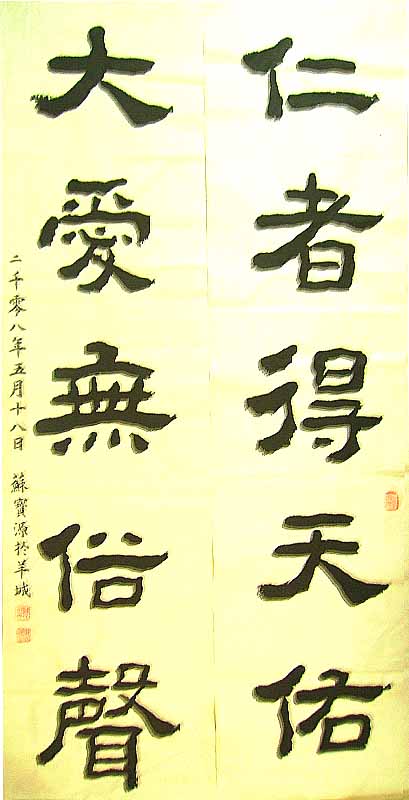 仁者得天佑
大愛無俗聲
二千零八年五月十八日 蘇寶源於羊城